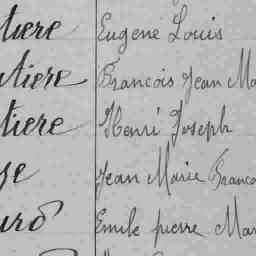 tiere Eugene Louis
tiere Francois Jean Ma
tiere Henri Joseph
Jean Marie Franco
Emile pierre Mar